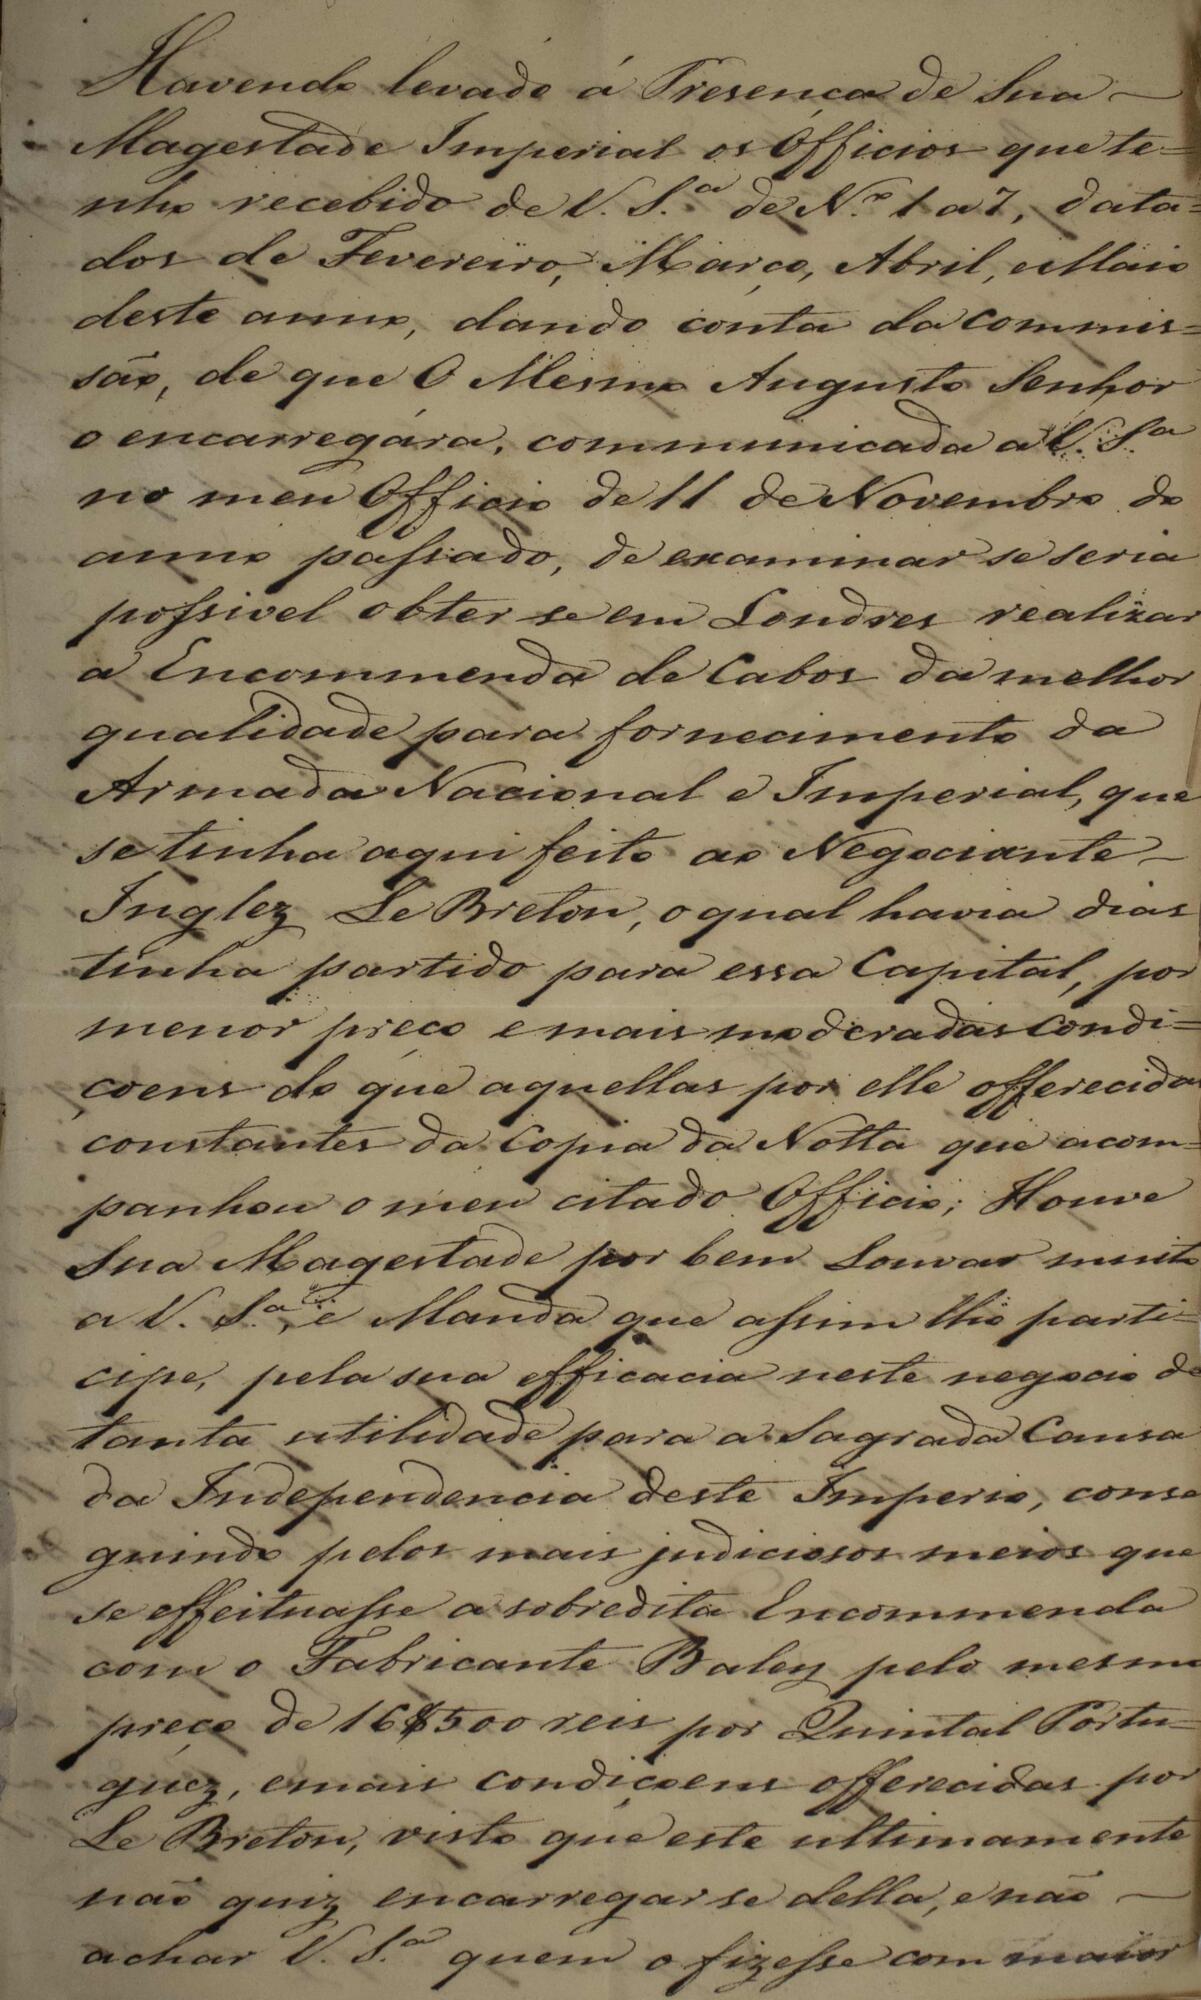 Havendo levado á Presença de Sua
Magestade Imperial os Officios que te=
nho recebido de V. S.ª de N.º 1 a 7, data=
dos de Fevereiro, Março, Abril, e Maio
deste anno, dando conta da commis=
são, de que O Mesmo Augusto Senhor
o encarregára, communicada a V. S.ª
no meu Officio de 11 de Novembro do
anno passado, de examinar se seria
possivel obter se em Londres realizar
a Encommenda de Cabos da melhor
qualidade para fornecimento da
Armada Nacional e Imperial, que
se tinha aqui feito ao Negociante
Inglez Le Breton, o qual havia dias
tinha partido para essa Capital, por
menor preço e mais moderadas condi=
çoens do que aquellas por elle offerecidas
constantes da Copia da Notta que acom=
panhou o meu citado Officio; Houve
Sua Magestade por bem Louvar muito
a V. S.ª, e Manda que assim lho parti=
cipe, pela sua efficacia neste negocio de
tanta utilidade para a Sagrada Causa
da Independencia deste Imperio, conse
guindo pelos mais judiciosos meios que
se effeituasse a sobredita Encommenda
com o Fabricante Baley pelo mesmo
preço de 16$500 reis por Quintal Portu=
guez, e mais condiçoens offerecidas por
Le Breton, visto que este ultimamente
não quiz encarregar se della, e não
achar V. S.ª quem o fizesse com maior